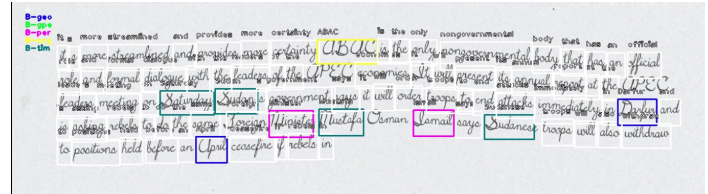 B-geo
B-gpe
B-per
B-tim
it is more streamlined and provides more certainty ABAC is the only nongovernmental body that has an official
role and formal dialogue with the leaders of the APEC economics It will present its annual report at the APEC
leaders meeting on Saturday Sudan's government says it will order troops to end attacks immediately in Darfur and
is asking rebels to do the same Foreign Minister Mustafa Osman Ismail says Sudanese troops will also withdraw
to positions held before an April ceasefire if rebels in